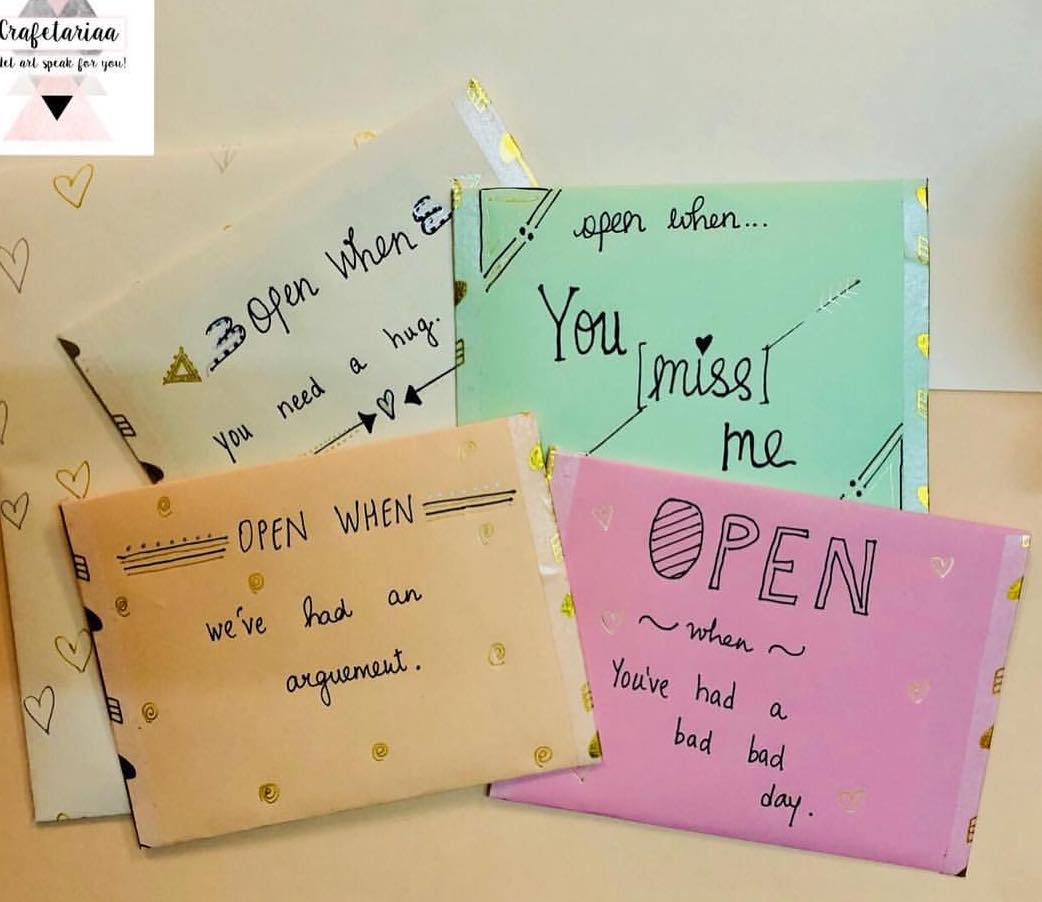 Crafetariaa
let art speak for you!
Open When
you need a hug.
open when...
You
[miss]
me
OPEN WHEN
we've had an
arguement.
OPEN
~when~
You've had a
bad bad
day.